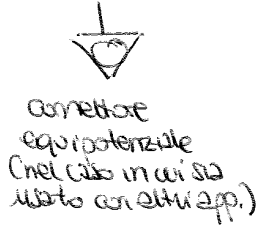 connettore
equipotenziale
(nel caso in cui sia
usato con altri app.)